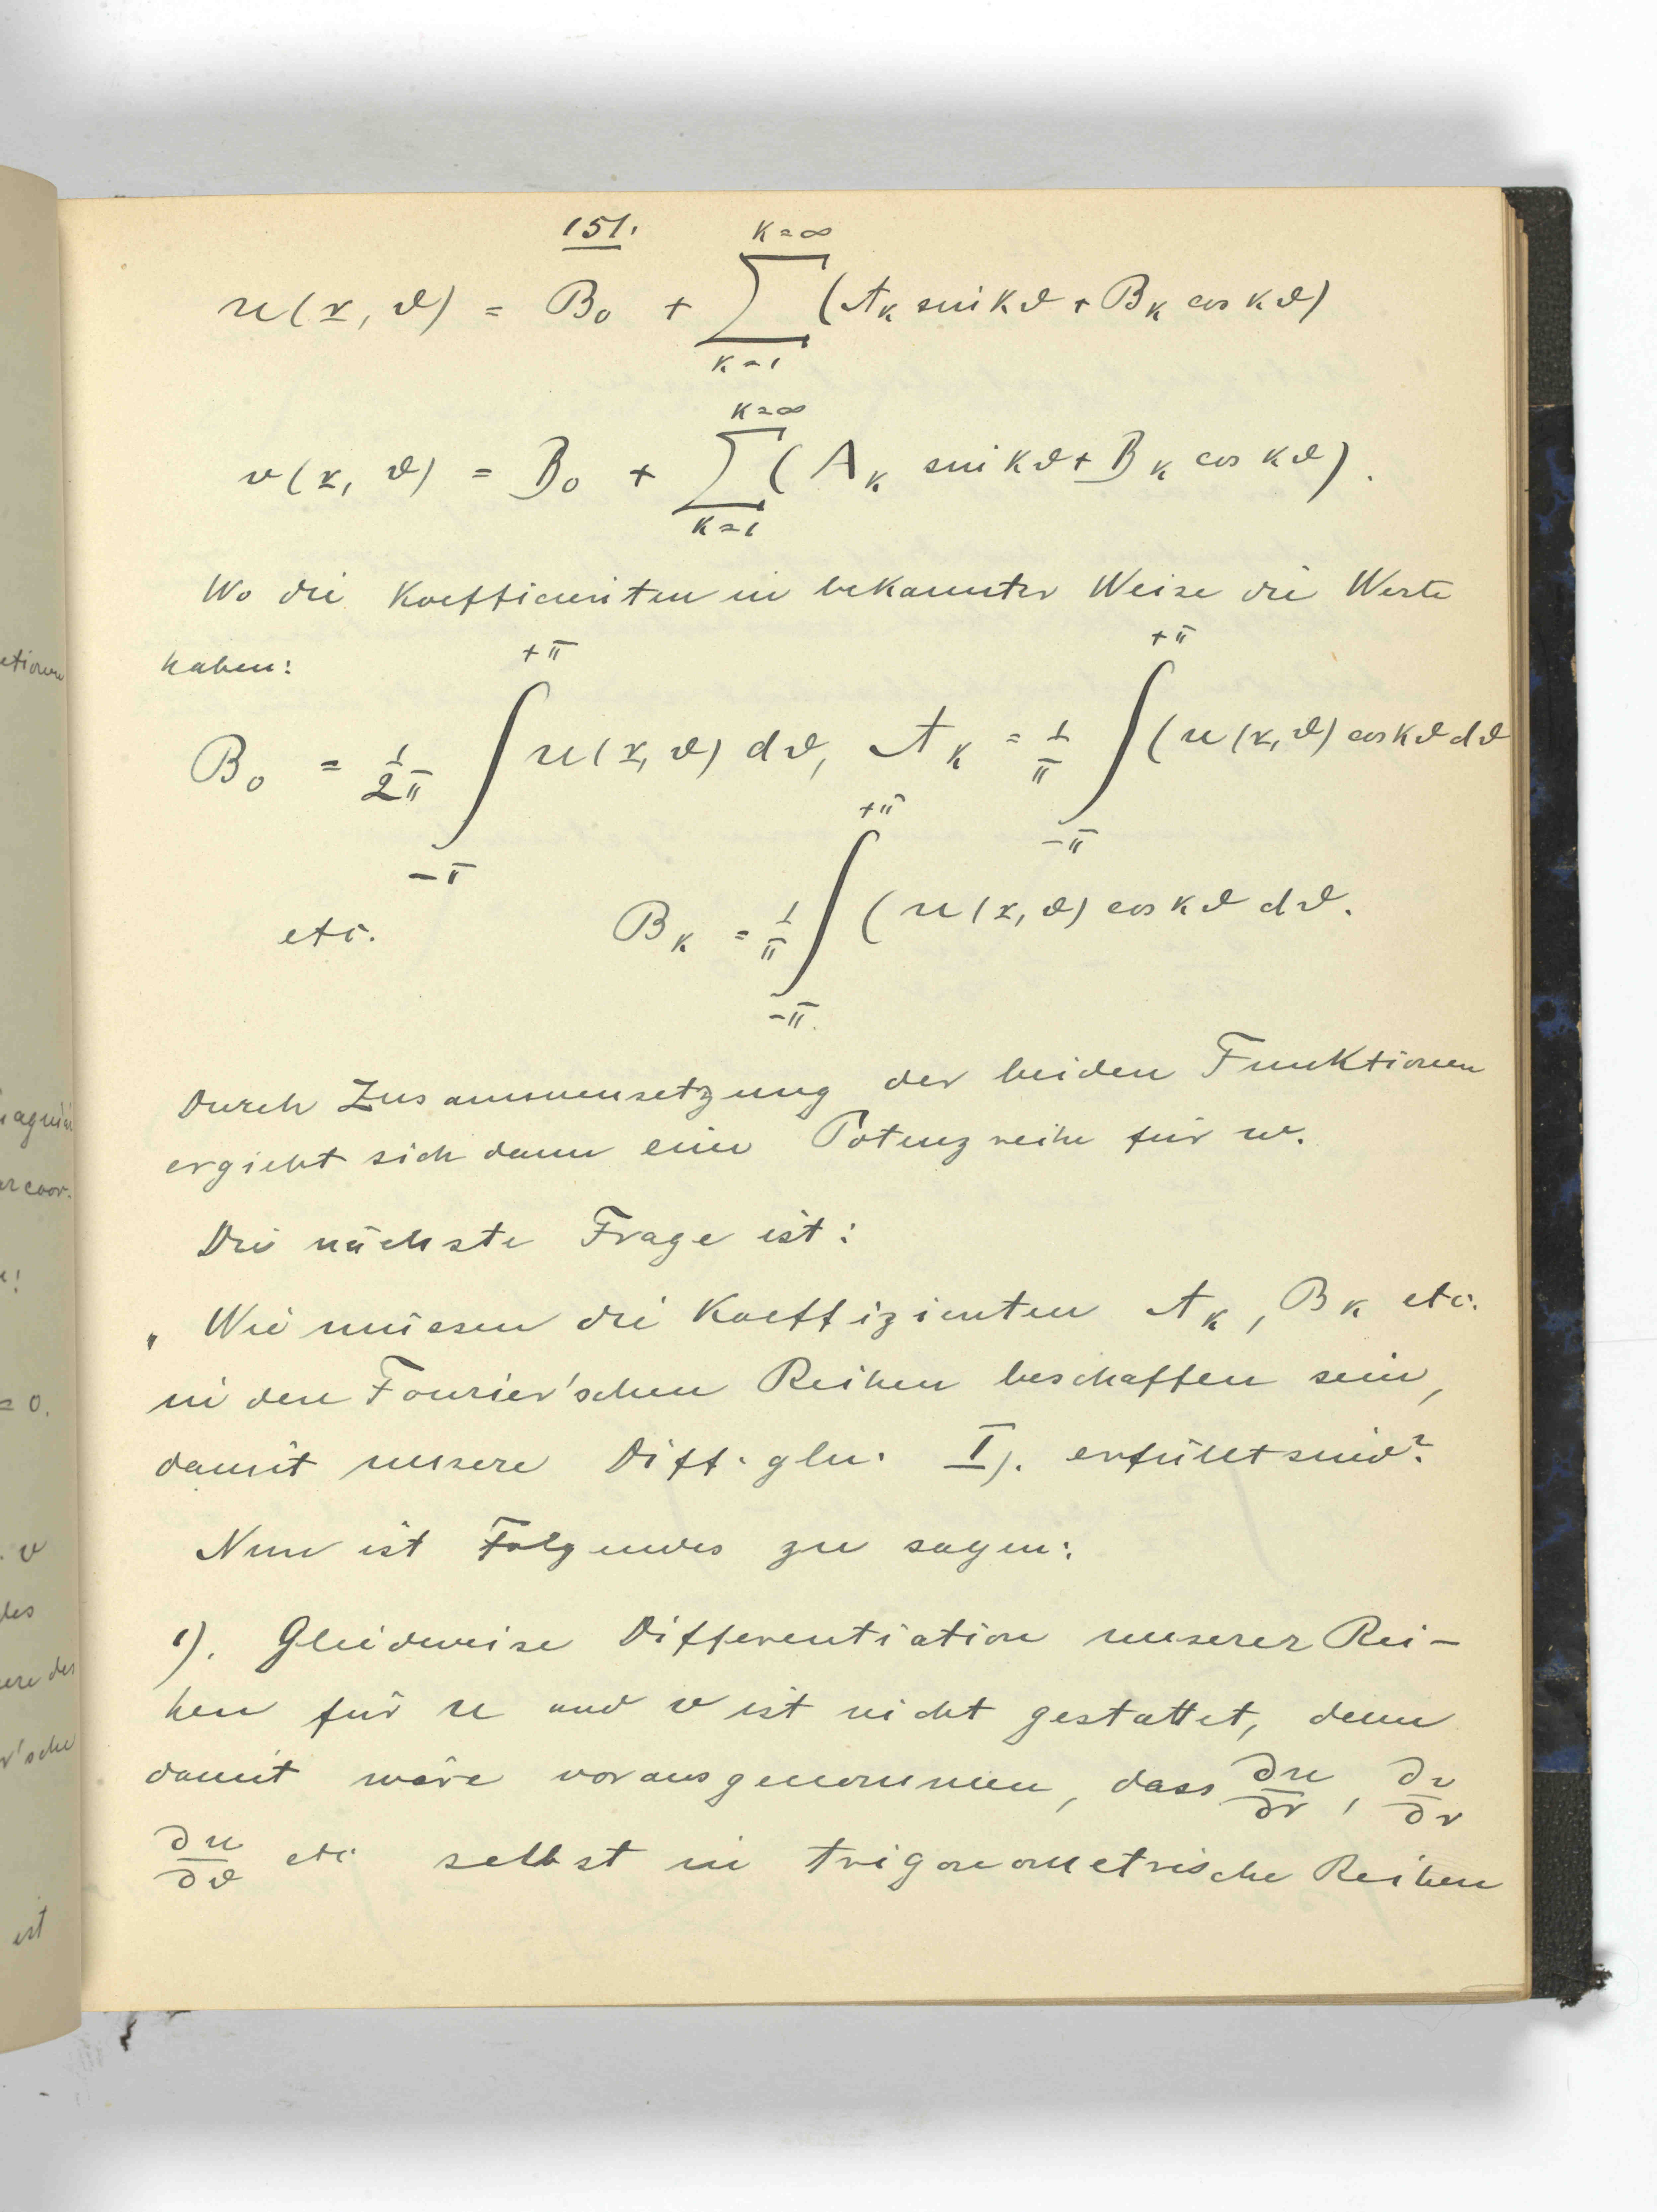 151.
u(r, ϑ) = B₀ + ∑_{k=1}^{k=∞} (A_k sin kϑ + B_k cos kϑ)
v(r, ϑ) = B₀ + ∑_{k=1}^{k=∞} (A_k sin kϑ + B_k cos kϑ).
Wo die Koefficienten in bekannter Weise die Werte
haben:
B₀ = 1/2π ∫_{-π}^{+π} u(r, ϑ) dϑ, A_k = 1/π ∫_{-π}^{+π} (u(r, ϑ) cos kϑ dϑ
etc. B_k = 1/π ∫_{-π}^{+π} (u(r, ϑ) cos kϑ dϑ.
Durch Zusammensetzung der beiden Funktionen
ergiebt sich dann eine Potenzreihe für w.
Die nächste Frage ist:
„Wie müssen die Koeffizienten A_k, B_k etc.
in den Fourier'schen Reihen beschaffen sein,
damit unsere Diff. gln. I). erfüllt sind?
Nun ist Folgendes zu sagen:
1). Gliedweise Differentiation unserer Rei-
hen für u und v ist nicht gestattet, denn
damit wäre vorausgenommen, dass ∂u/∂r, ∂v/∂r
∂u/∂ϑ etc selbst in trigonometrische Reihen